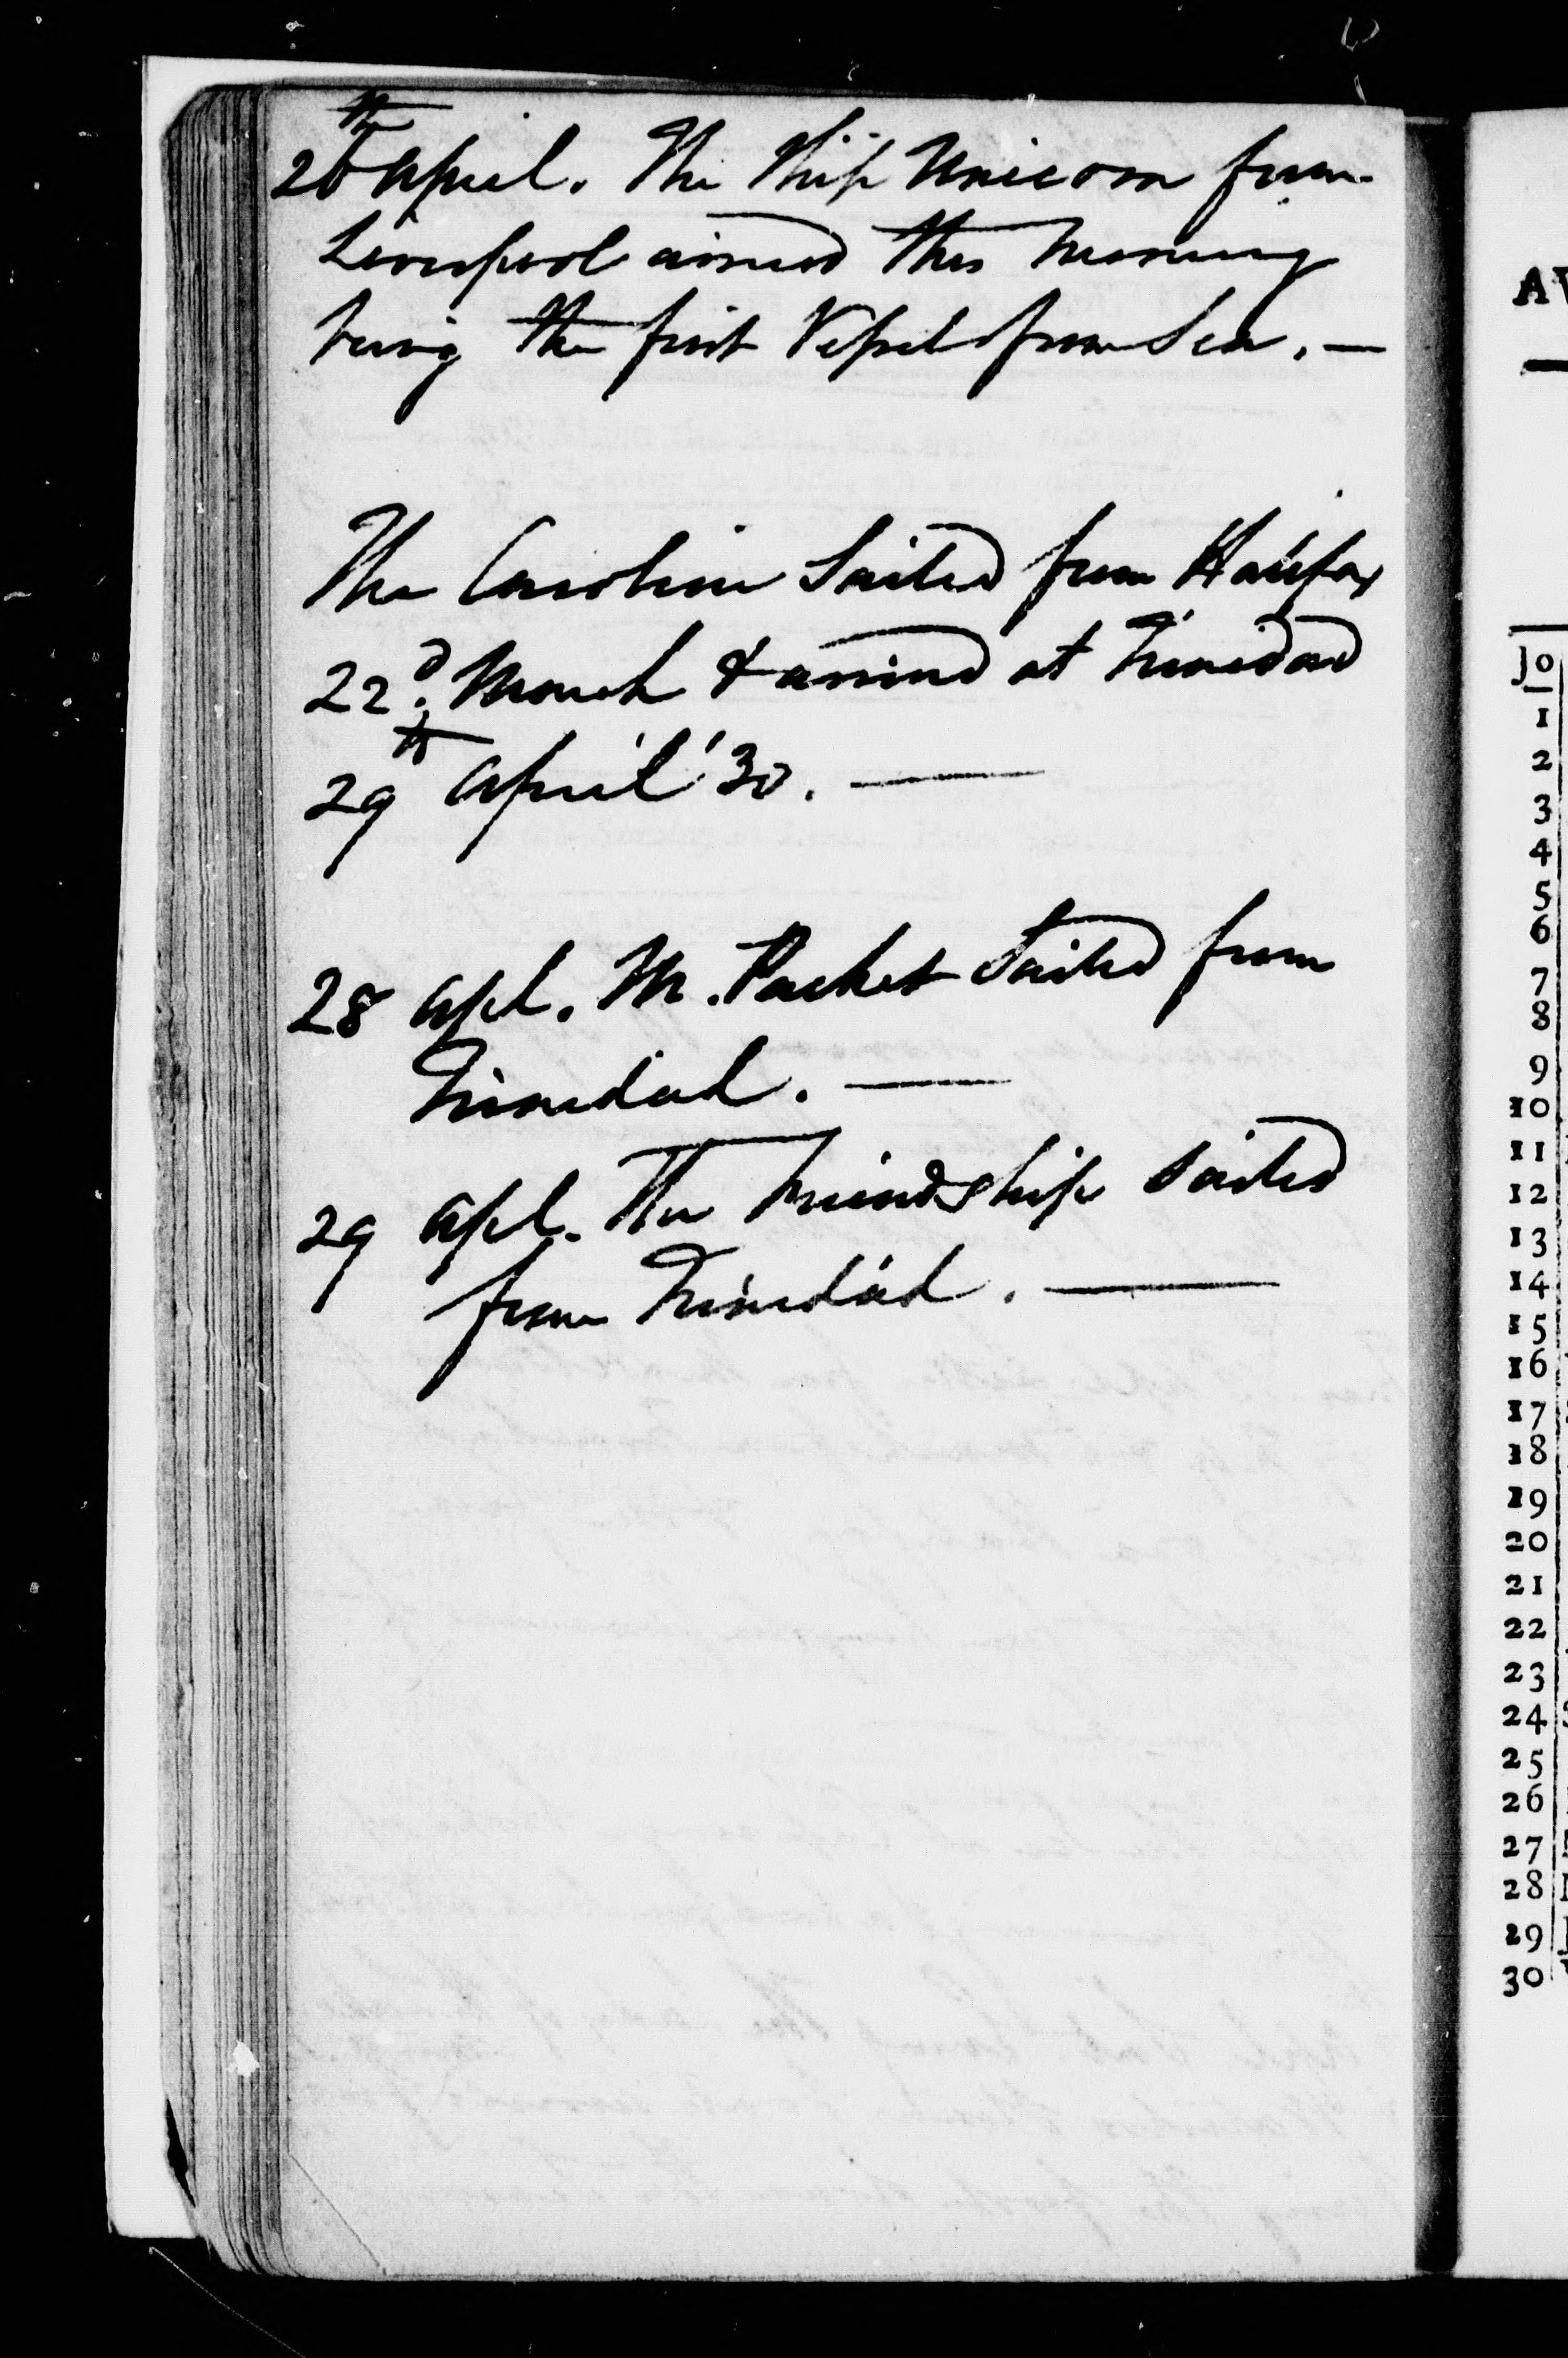 26th April. The Ship Unicorn from
Liverpool arrived this morning
being the first Vessel from Sea. —
The Caroline Sailed from Halifax
22d. March & arrived at Trinidad
29th April '30. —
28 Apl. M. Packet Sailed from
Trinidad. —
29 Apl. The Friendship Sailed
from Trinidad. —
AV
Jo
1
2
3
4
5
6
7
8
9
10
11
12
13
14
15
16
17
18
19
20
21
22
23
24
25
26
27
28
29
30